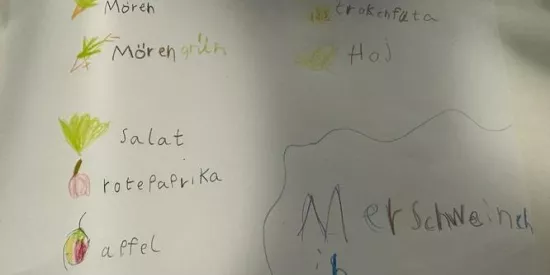 Mören
Mörengrün
Salat
rotepaprika
apfel
trokenfuta
Hoj
Merschweinch